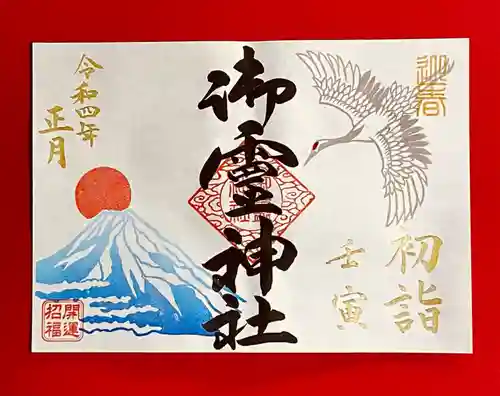 迎春
初詣
壬寅
御靈神社
令和四年
正月
開運
招福